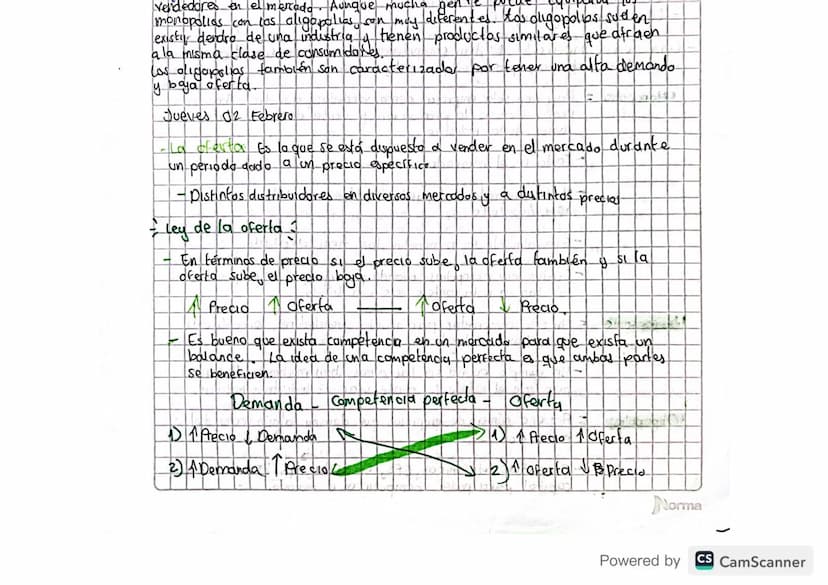 vendedores en el mercado. Aunque mucha gente
monopolios con los oligopolios, son muy diferentes. Los oligopolios suelen
existir dentro de una industria y tienen productos similares que atraen
a la misma clase de consumidores.
Los oligopolios también son caracterizados por tener una alta demanda
y baja oferta.
Jueves 02 Febrero
- La oferta: Es la que se está dispuesto a vender en el mercado durante
un periodo dado a un precio específico.
- Distintos distribuidores en diversos mercados y a distintos precios
Ley de la oferta:
- En términos de precio si el precio sube, la oferta también y si la
oferta sube, el precio baja.
↑ Precio ↑ Oferta — ↑ Oferta ↓ Precio.
- Es bueno que exista competencia en un mercado para que exista un
balance. La idea de una competencia perfecta es que ambas partes
se beneficien.
Demanda - Competencia perfecta - Oferta
1) ↑ Precio ↓ Demanda 1) ↑ Precio ↑ Oferta
2) ↑ Demanda ↑ Precio 2) ↑ Oferta ↓ Precio
Norma
Powered by CS CamScanner